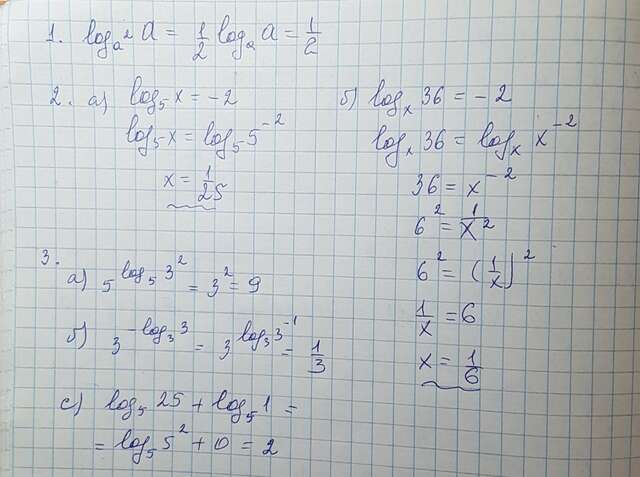 1. log_{a^2} a = 1/2 log_a a = 1/2
2. а) log_5 x = -2
log_5 x = log_5 5^{-2}
x = 1/25
б) log_x 36 = -2
log_x 36 = log_x x^{-2}
36 = x^{-2}
6^2 = 1/x^2
6^2 = (1/x)^2
1/x = 6
x = 1/6
3.
а) 5^{log_5 3^2} = 3^2 = 9
б) 3^{-log_3 3} = 3^{log_3 3^{-1}} = 1/3
с) log_5 25 + log_5 1 =
= log_5 5^2 + 0 = 2